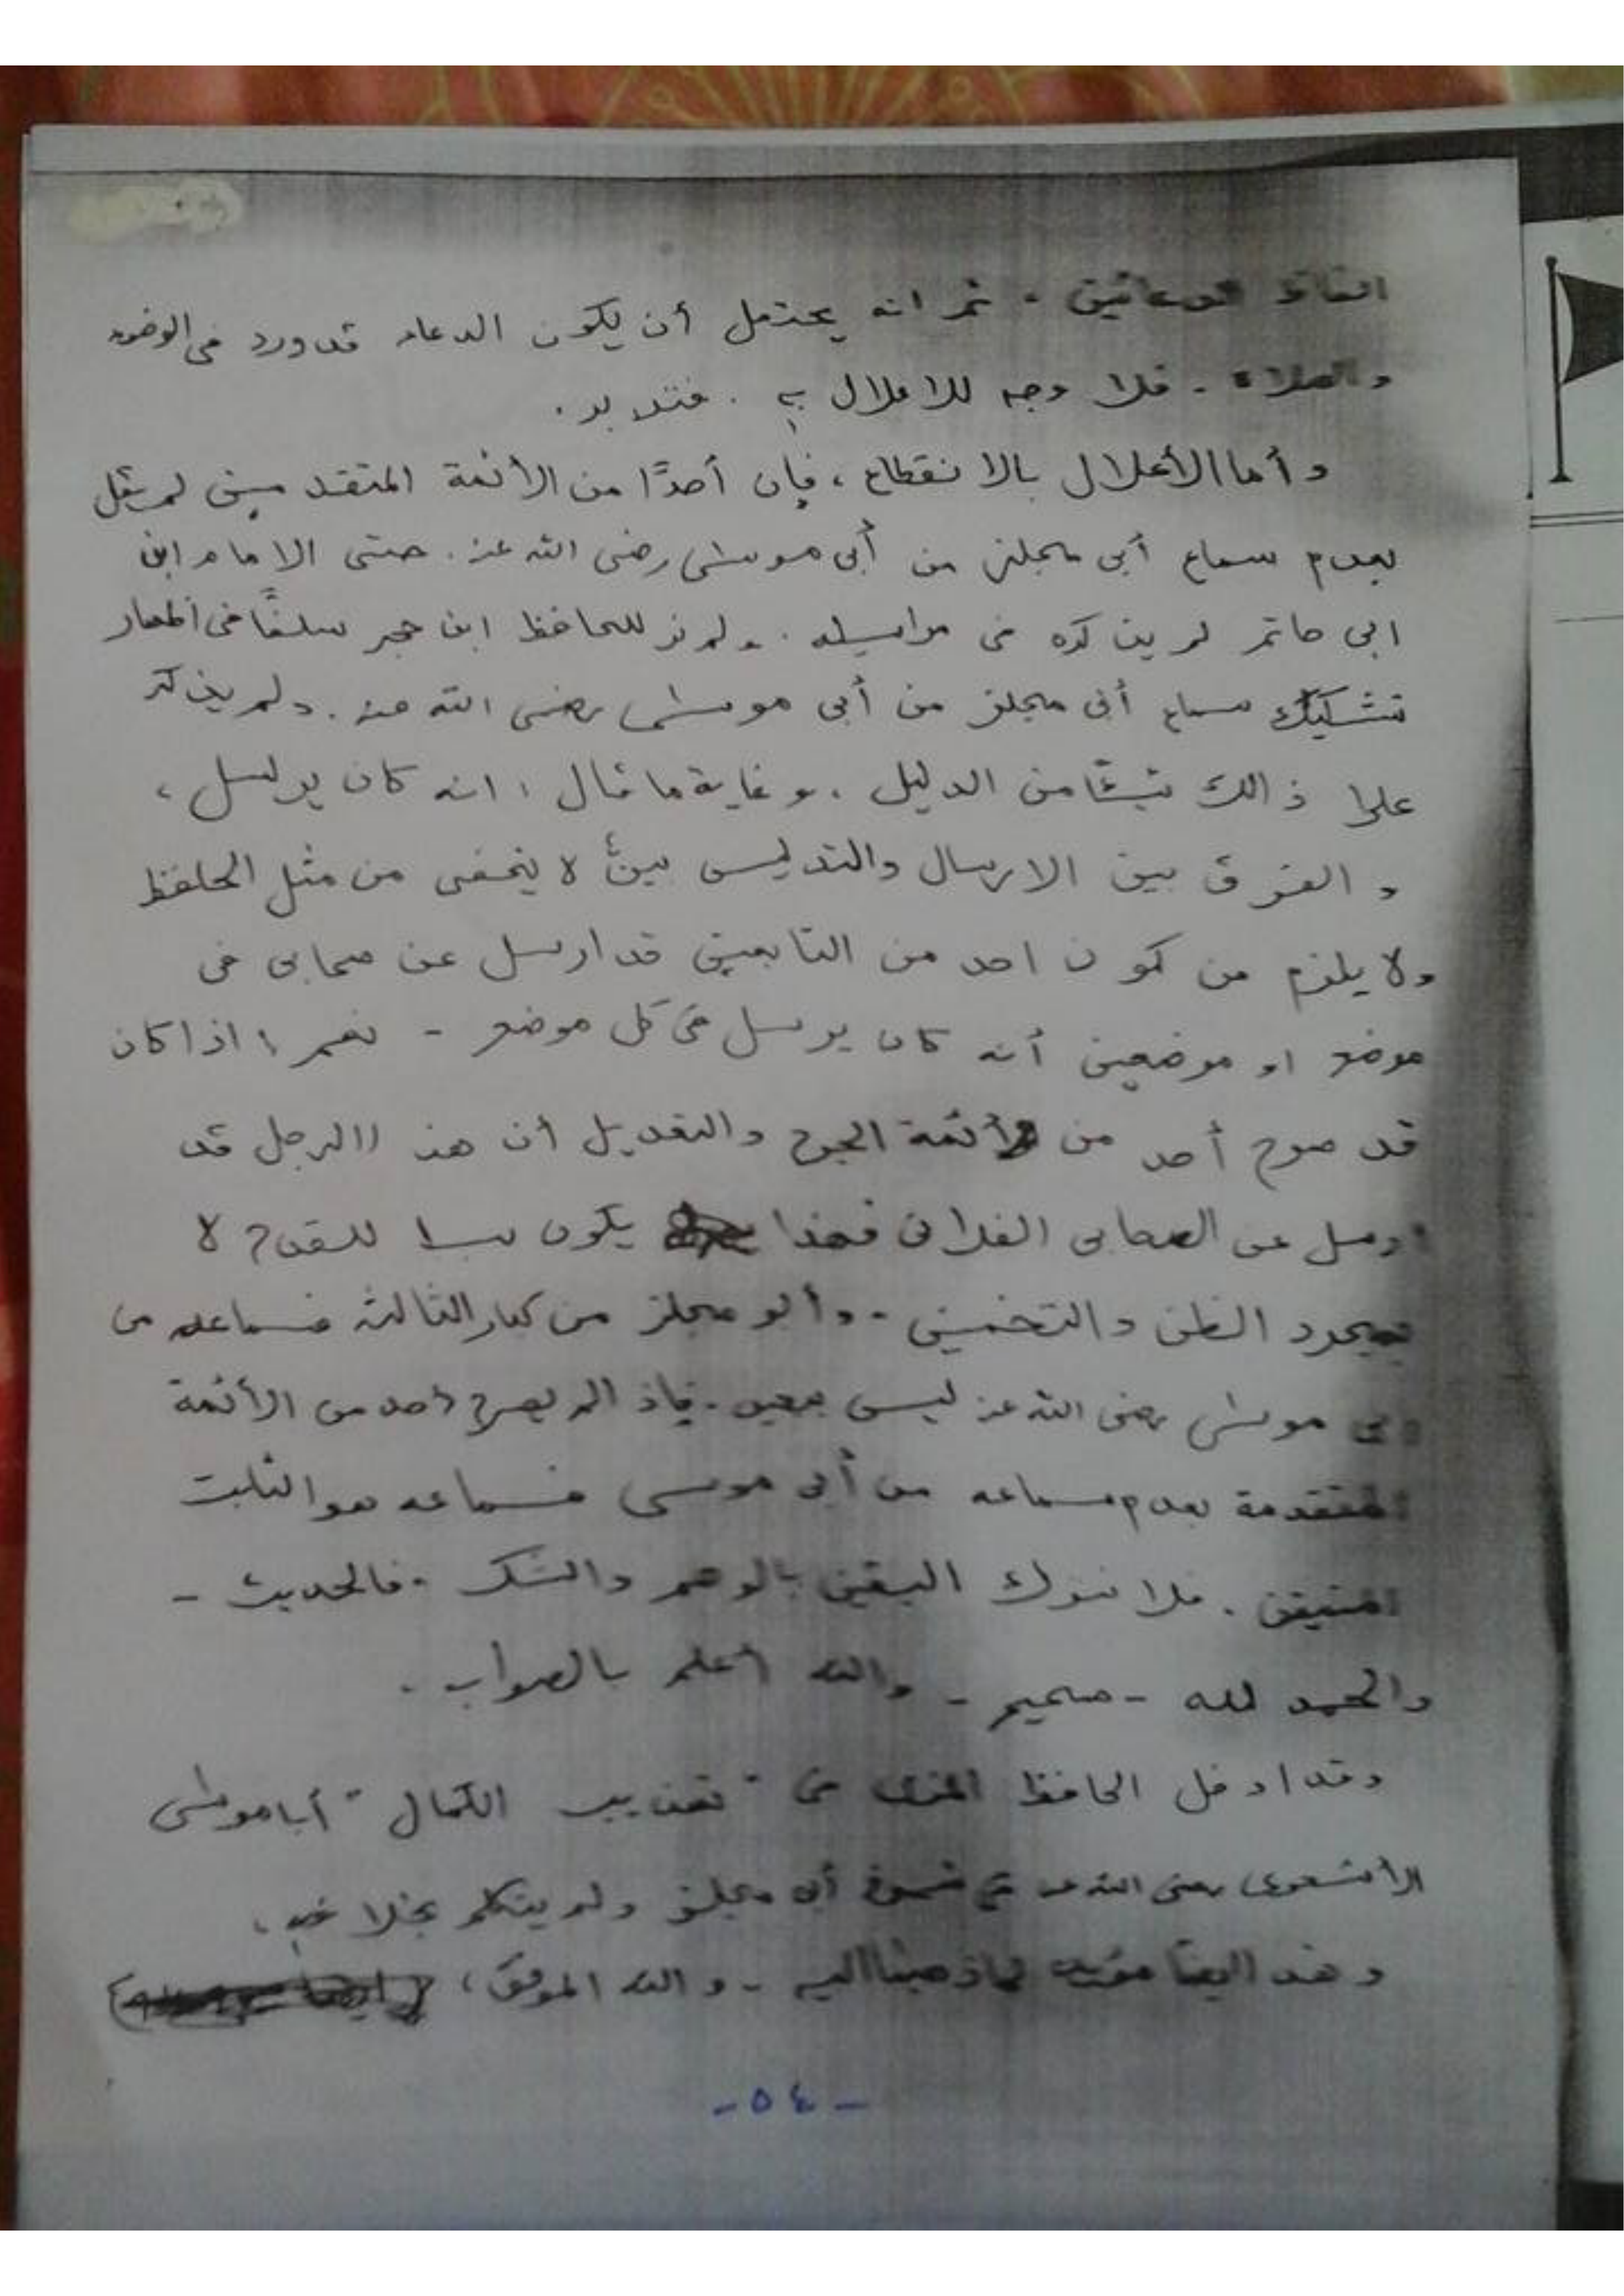 الفاظ الدعائين . ثم انه يحتمل أن يكون الدعاء قد ورد فى الوضوء
والصلاة . فلا وجه للاعلال به . فتدبر .
وأما الأعلال بالانقطاع ، فإن أحدًا من الأئمة المتقدمين لم يقل
بعدم سماع أبي مجلز من أبى موسى رضى الله عنه . حتى الامام ابن
ابى حاتم لم يذكره فى مراسيله . ولم نر للحافظ ابن حجر سلفًا فى اظهار
تشكيك سماع أبى مجلز من أبى موسى رضى الله عنه . ولم يذكر
على ذالك شيئا من الدليل . وغاية ما قال : انه كان يرسل ،
والفرق بين الارسال والتدليس بينٌ لا يخفى من مثل الحافظ
ولا يلزم من كون احد من التابعين قد ارسل عن صحابى فى
موضع او موضعين أنه كان يرسل فى كل موضع - نعم ! اذا كان
قد صرح أحد من أئمة الجرح والتعديل أن هذا الرجل قد
ارسل عن الصحابى الفلانى فهذا يكون سببا للقدح لا
بمجرد الظن والتخمين - وأبو مجلز من كبار الثالثة فسماعه من
ابى موسى رضى الله عنه ليس ببعيد . فإذا لم يصرح احد من الأئمة
المتقدمة بعدم سماعه من أبى موسى فسماعه هو الثابت
المتيقن . فلا نترك اليقين بالوهم والشك . فالحديث -
والحمد لله - صحيح - والله أعلم بالصواب .
وقد ادخل الحافظ المزى فى " تهذيب الكمال " أبا موسى
الأشعرى رضى الله عنه فى شيوخ أبى مجلز ولم يتكلم بخلافه ،
وهذا ايضًا مؤيد لما ذهبنا اليه - والله الموفق ،
- ٥٤ -